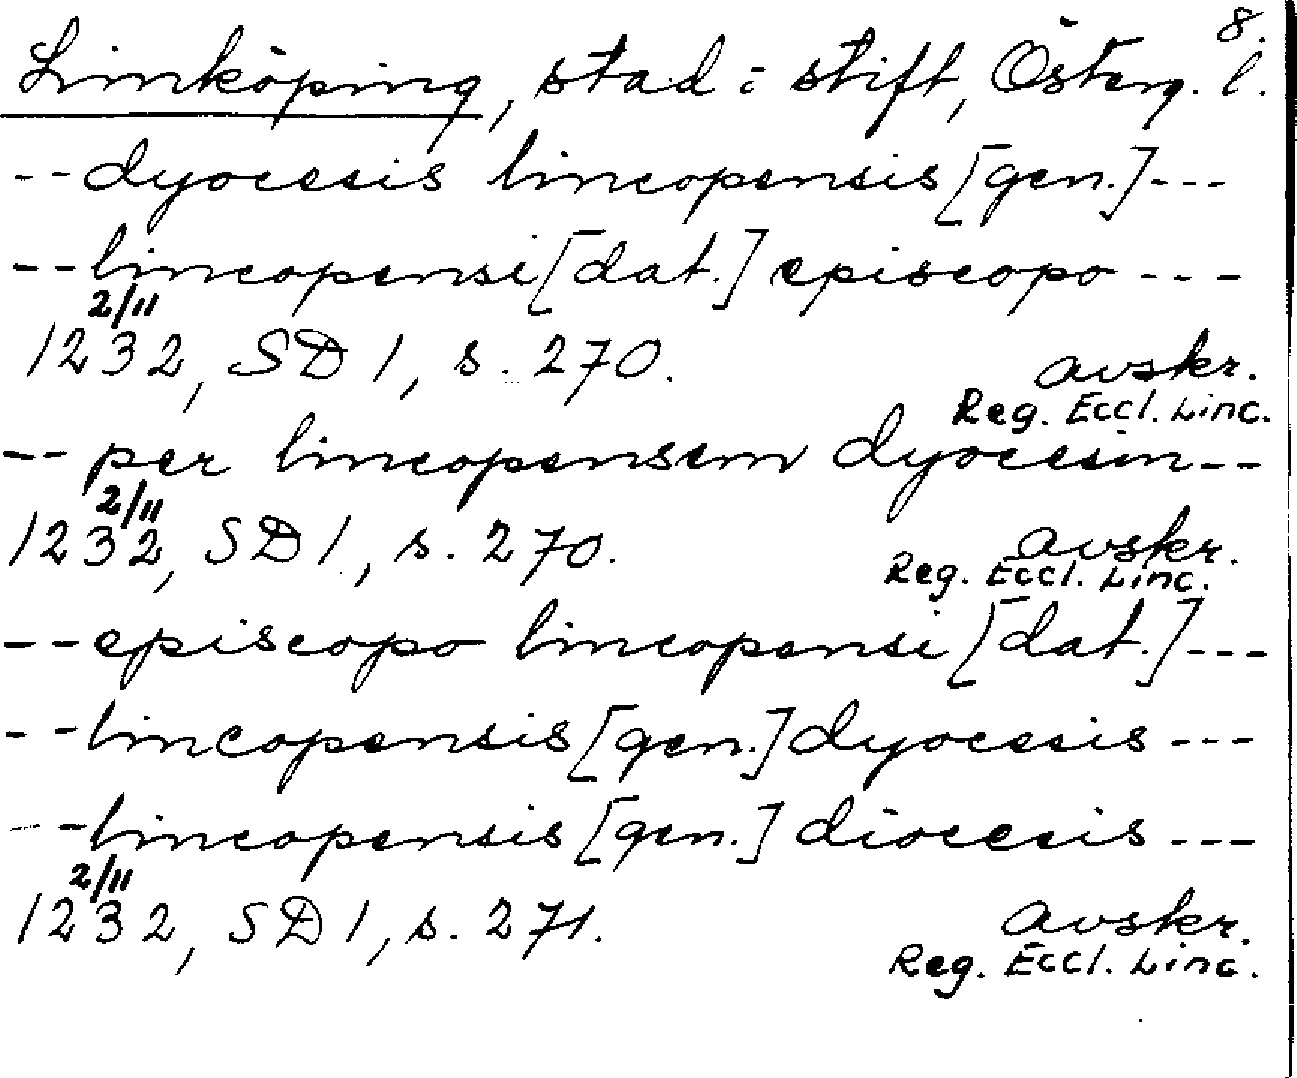 8.
Linköping, stad : stift, Österg. l.
-- dyocesis lincopensis [gen.] ---
-- lincopensi [dat.] episcopo ---
2/11
1232, SD 1, s. 270. avskr.
Reg. Eccl. Linc.
-- per lincopensem dyocesin --
2/11
1232, SD 1, s. 270. avskr.
Reg. Eccl. Linc.
-- episcopo lincopensi [dat.] ---
-- lincopensis [gen.] dyocesis ---
-- lincopensis [gen.] diocesis ---
2/11
1232, SD 1, s. 271. avskr.
Reg. Eccl. Linc.